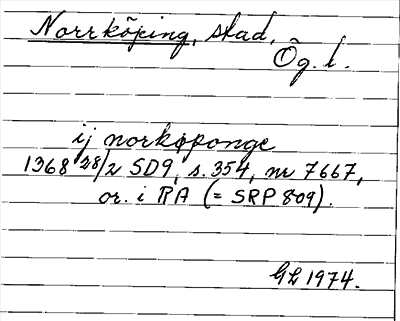 Norrköping, stad,
Ög. l.
ij norkøponge
1368 28/2 SD9, s. 354, nr 7667,
or. i RA (= SRP 809).
GL 1974.